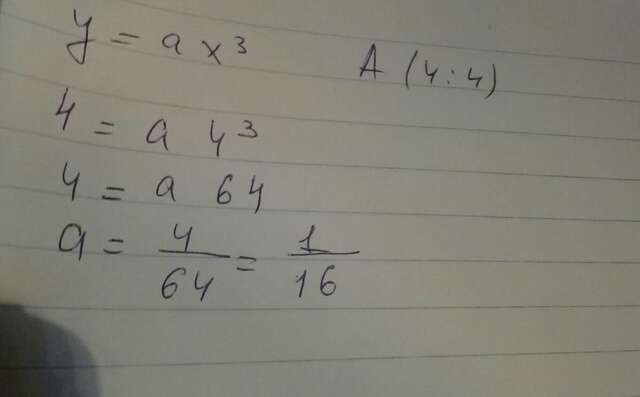 y = a x³ A (4:4)
4 = a 4³
4 = a 64
a = 4/64 = 1/16